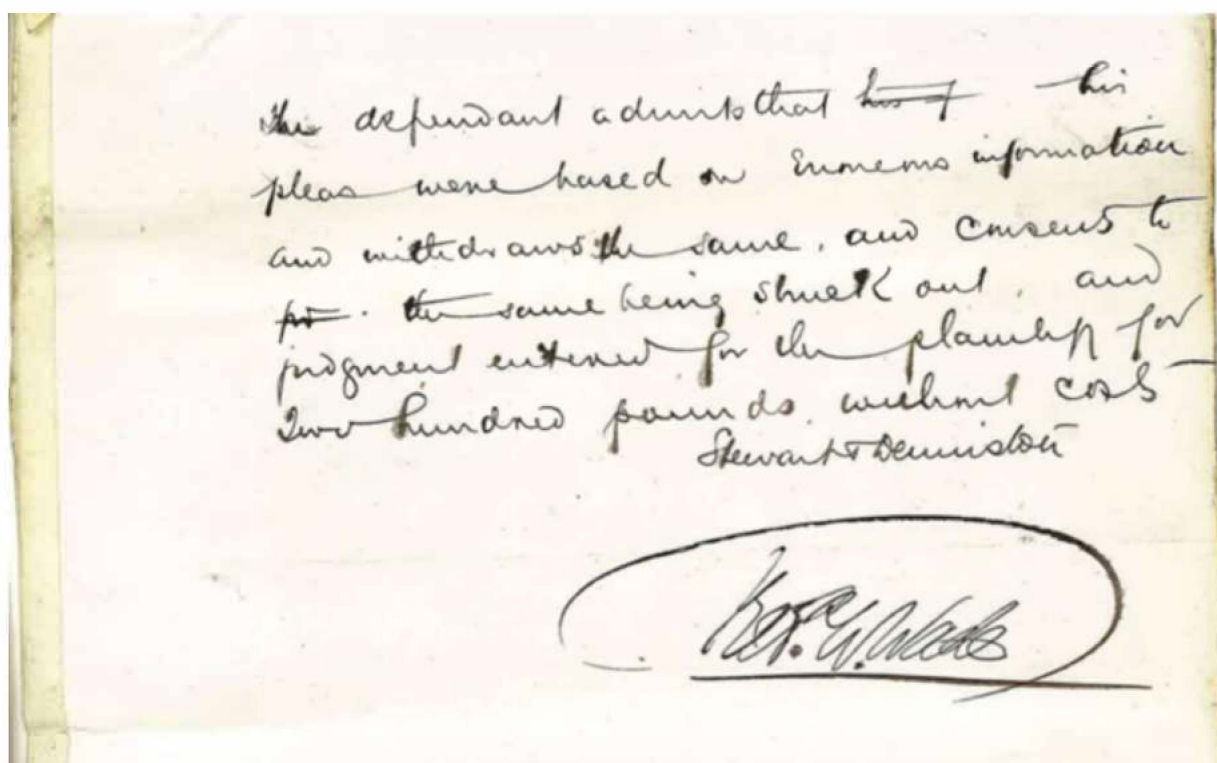 The defendant admits that his his
pleas were based on Erroneous information
and withdraws the same, and consents to
the same being struck out, and
judgment entered for the plaintiff for
Two hundred pounds without costs
Stewart & Denniston